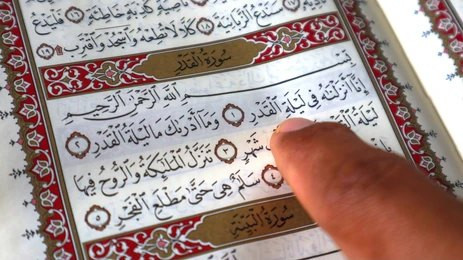 نَاصِيَةٍ كَٰذِبَةٍ خَاطِئَةٍ فَلْيَدْعُ
سَنَدْعُ ٱلزَّبَانِيَةَ كَلَّا لَا تُطِعْهُ وَٱسْجُدْ وَٱقْتَرِب ١٩
سُورَةُ القَدْرِ
بِسْمِ ٱللَّهِ ٱلرَّحْمَٰنِ ٱلرَّحِيمِ
إِنَّآ أَنزَلْنَٰهُ فِى لَيْلَةِ ٱلْقَدْرِ ١ وَمَآ أَدْرَىٰكَ مَا لَيْلَةُ ٱلْقَدْرِ ٢
لَيْلَةُ ٱلْقَدْرِ شَهْرٍ ٣ تَنَزَّلُ ٱلْمَلَٰٓئِكَةُ وَٱلرُّوحُ فِيهَا
٤ سَلَٰمٌ هِىَ حَتَّىٰ مَطْلَعِ ٱلْفَجْرِ ٥
سُورَةُ البَيِّنَةِ